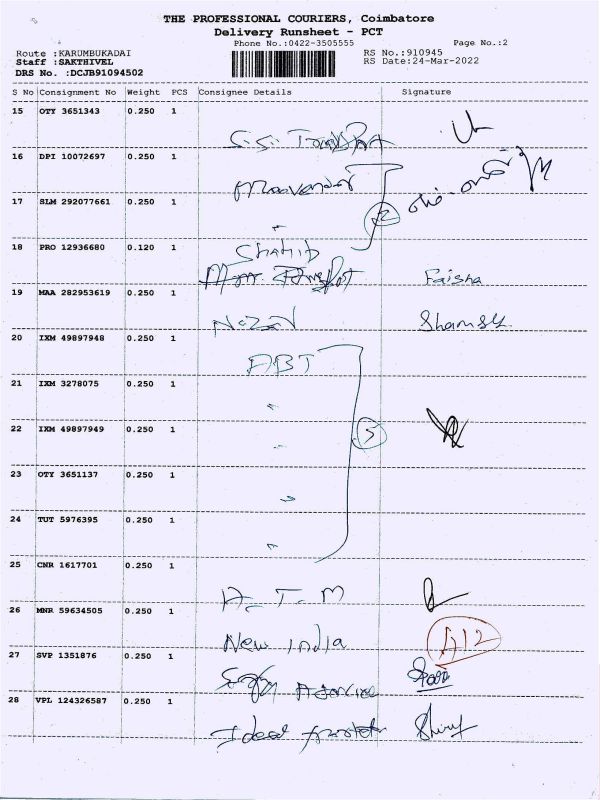 THE PROFESSIONAL COURIERS, Coimbatore
Delivery Runsheet - PCT
Phone No.:0422-3505555
Page No.:2
Route :KARUMBUKADAI
RS No.:910945
Staff :SAKTHIVEL
RS Date:24-Mar-2022
DRS No. :DCJB91094502
S No Consignment No Weight PCS Consignee Details Signature
15 OTY 3651343 0.250 1
S.S.
16 DPI 10072697 0.250 1
17 SLM 292077661 0.250 1
2
18 PRO 12936680 0.120 1
Shahib
Faisha
19 MAA 282953619 0.250 1
20 IXM 49897948 0.250 1
ABT
21 IXM 3278075 0.250 1
22 IXM 49897949 0.250 1
5
23 OTY 3651137 0.250 1
24 TUT 5976395 0.250 1
25 CNR 1617701 0.250 1
A. T. M
26 MNR 59634505 0.250 1
New India A12
27 SVP 1351876 0.250 1
28 VPL 124326587 0.250 1
Ideal